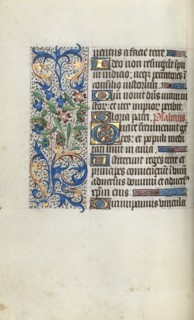 ventus a facie terre
Ideo non resurgunt impij
in iudicio: neqz peccatores i
consilio iustorum
Qm nouit dns uiam ius
torz: et iter impiorz peribit
Gloria patri. Psalmus.
Quare fremuerunt gen
tes: et populi medi
tati sunt in ania
Astiterunt reges terre et
principes conuenerunt i vnū
aduersus dominum et aduersus
xpm eius
Dirumpamus vincula